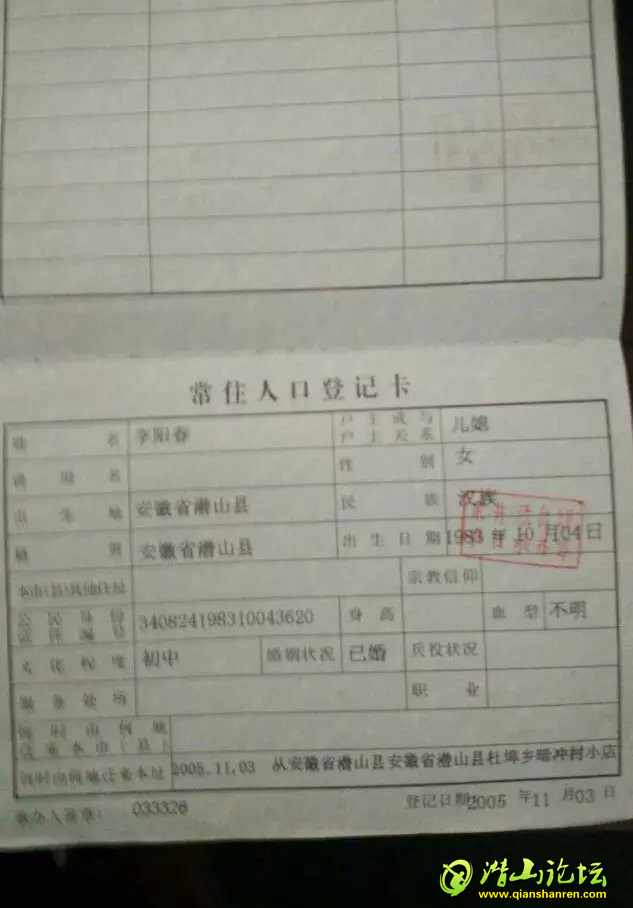 常住人口登记卡
姓名 李阳春 户主或与户主关系 儿媳
曾用名 性别 女
出生地 安徽省潜山县 民族 汉族
籍贯 安徽省潜山县 出生日期 1983年10月04日
本市(县)其他住址 宗教信仰
公民身份证件编号 340824198310043620 身高 血型 不明
文化程度 初中 婚姻状况 已婚 兵役状况
服务处所 职业
何时由何地迁来本市(县)
何时由何地迁来本址 2005.11.03 从安徽省潜山县安徽省潜山县杜埠乡暗冲村小店
承办人签章: 033326 登记日期: 2005年11月03日
潜山论坛
www.qianshanren.com